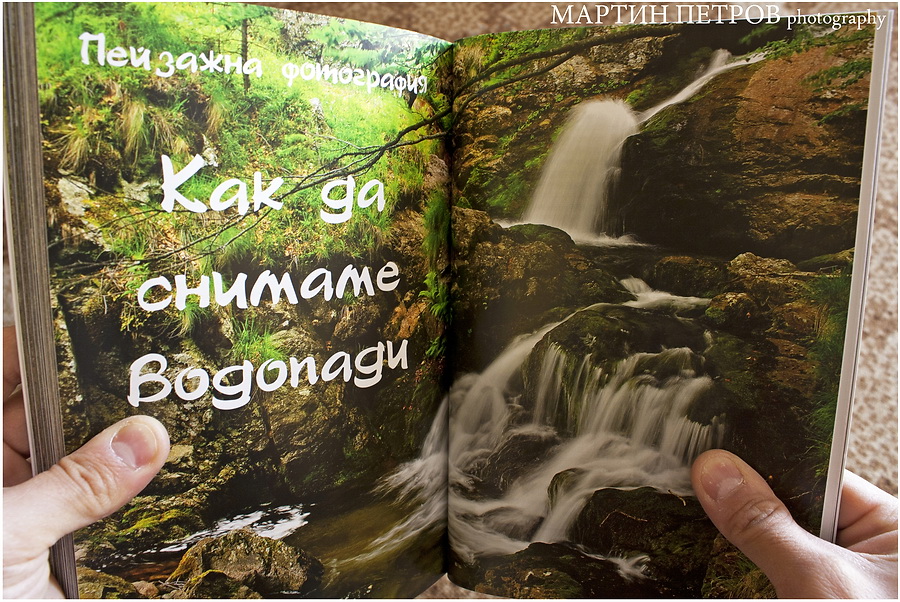 МАРТИН ПЕТРОВ photography
Пейзажна фотография
Как да
снимаме
Водопади